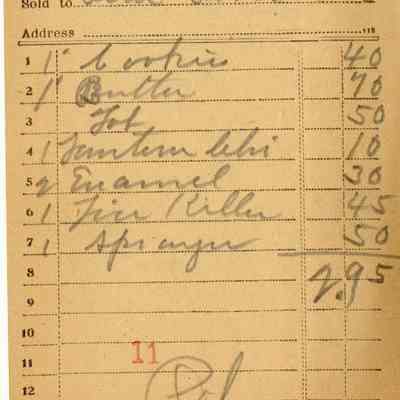 Sold to
Address
1 1# Cookies 40
2 1# Butter 70
3 50
4 1 Lantern 10
5 2 Enamel 30
6 1 Killer 45
7 1 Sprayer 50
8 2.95
9
10
11 11
12 Pd